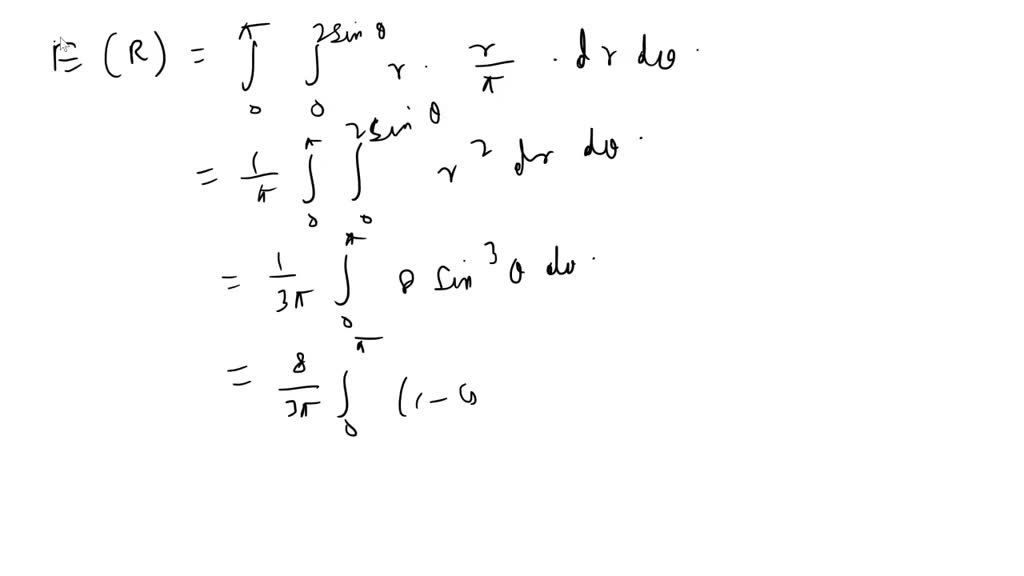 E (R) = ∫₀^π ∫₀^{2 sin θ} r · r/π · dr dθ ·
= 1/π ∫₀^π ∫₀^{2 sin θ} r² dr dθ ·
= 1/3π ∫₀^π 8 sin³ θ dθ ·
= 8/3π ∫₀^π (1 - co